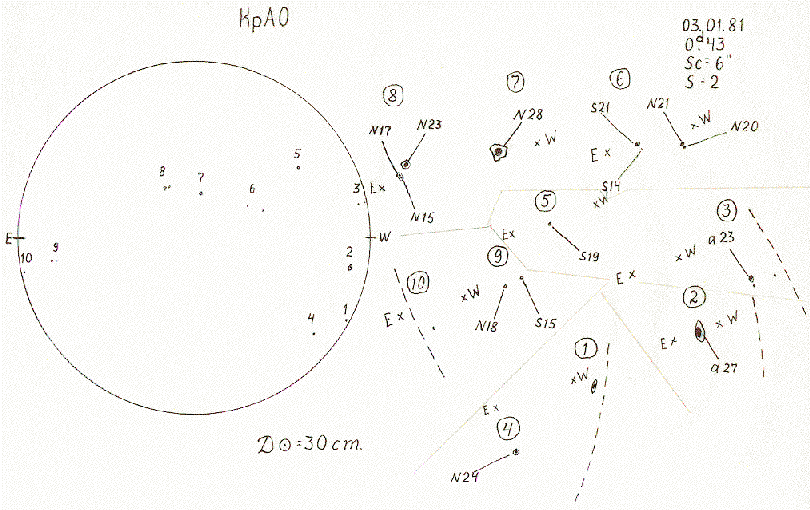 КрАО
03.01.81
0ᵈ.43
Sc = 6"
S = 2
8
7
6
N17
N23
N28
S21
N21
W
N20
x W
E x
E x
N15
S14
5
8
7
6
3
5
x W
3
E
W
E x
S19
a 23
10
9
2
9
10
x W
x W
E x
2
E x
N18
S15
E x
x W
4
1
1
a 27
x W
E x
4
D ⊙ = 30 cm.
N24